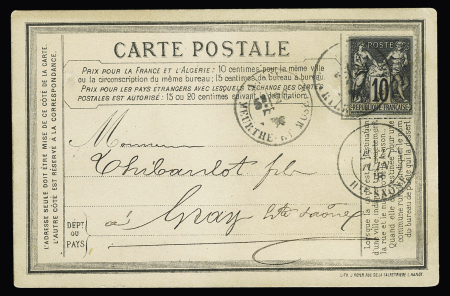 CARTE POSTALE
PRIX POUR LA FRANCE ET L'ALGÉRIE: 10 centimes pour la même ville
ou la circonscription du même bureau; 15 centimes de bureau à bureau.
PRIX POUR LES PAYS ÉTRANGERS AVEC LESQUELS L'ÉCHANGE DES CARTES
POSTALES EST AUTORISÉ: 15 ou 20 centimes suivant la destination.
POSTE
10
RÉPUBLIQUE FRANÇAISE
MEURTHE-ET-MOS
L'ADRESSE SEULE DOIT ÊTRE MISE DE CE CÔTÉ DE LA CARTE.
L'AUTRE CÔTÉ EST RÉSERVÉ A LA CORRESPONDANCE.
Monsieur
Thibaulot fils
à Gray Hte Saône
DÉPT
OU
PAYS
Lorsque la
d'une ville
la rue et le
Quand elle
commune rurale
du bureau de poste qui la dessert.